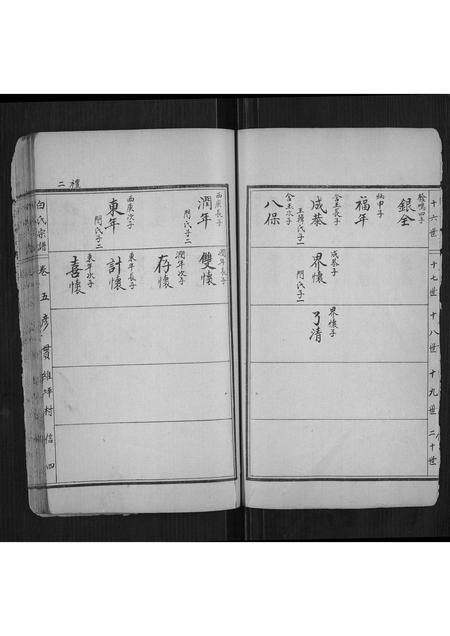 十六世
十七世
十八世
十九世
二十世
銀全
福年
成恭
金玉長子
王韓氏子一
八保
金玉次子
界懷
成恭子
閆氏子一
了清
界懷子
潤年
西庚長子
閆氏子二
東年
西庚次子
閆氏子二
雙懷
潤年長子
存懷
潤年次子
計懷
東年長子
喜懷
東年次子
禮二
白氏宗譜
卷五
彦貫維坪村信四